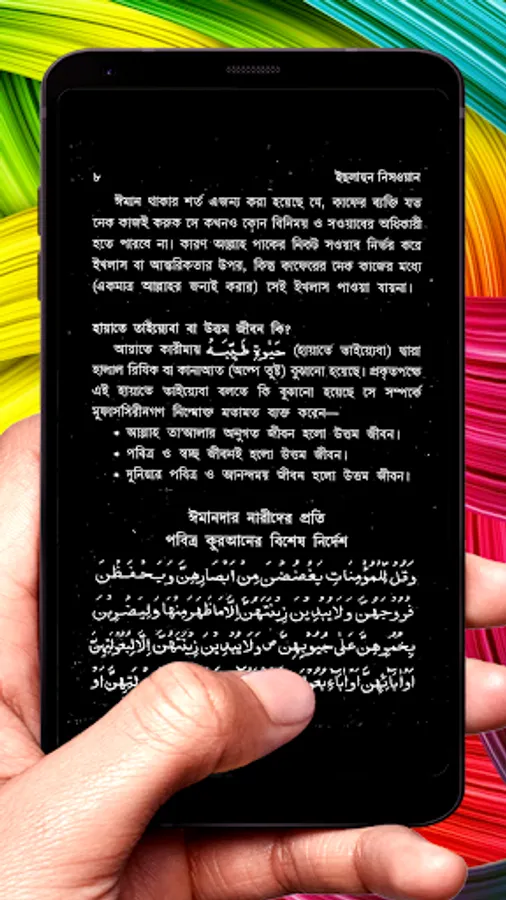 ৮ ইছলাহুন নিসওয়ান
ঈমান থাকার শর্ত এজন্য করা হয়েছে যে, কাফের ব্যক্তি যত
নেক কাজই করুক সে কখনও কোন বিনিময় ও সওয়াবের অধিকারী
হতে পারবে না। কারণ আল্লাহ পাকের নিকট সওয়াব নির্ভর করে
ইখলাস বা আন্তরিকতার উপর, কিন্তু কাফেরের নেক কাজের মধ্যে
(একমাত্র আল্লাহর জন্যই করার) সেই ইখলাস পাওয়া যায়না।
হায়াতে তাইয়্যেবা বা উত্তম জীবন কি?
আয়াতে কারীমায় حَيٰوةً طَيِّبَةً (হায়াতে তাইয়্যেবা) দ্বারা
হালাল রিযিক বা কানাআত (অল্পে তুষ্ট) বুঝানো হয়েছে। প্রকৃতপক্ষে
এই হায়াতে তাইয়্যেবা বলতে কি বুঝানো হয়েছে সে সম্পর্কে
মুফাসসিরীনগণ নিম্নোক্ত মতামত ব্যক্ত করেন—
• আল্লাহ তা'আলার অনুগত জীবন হলো উত্তম জীবন।
• পবিত্র ও স্বচ্ছ জীবনই হলো উত্তম জীবন।
• দুনিয়ার পবিত্র ও আনন্দময় জীবন হলো উত্তম জীবন।
ঈমানদার নারীদের প্রতি
পবিত্র কুরআনের বিশেষ নির্দেশ
وَقُلْ لِّلْمُؤْمِنَاتِ يَغْضُضْنَ مِنْ اَبْصَارِهِنَّ وَيَحْفَظْنَ
فُرُوْجَهُنَّ وَلَا يُبْدِيْنَ زِيْنَتَهُنَّ اِلَّا مَا ظَهَرَ مِنْهَا وَلْيَضْرِبْنَ
بِخُمُرِهِنَّ عَلٰى جُيُوْبِهِنَّ ص وَلَا يُبْدِيْنَ زِيْنَتَهُنَّ اِلَّا لِبُعُوْلَتِهِنَّ
اَوْ اٰبَائِهِنَّ اَوْ اٰبَاءِ